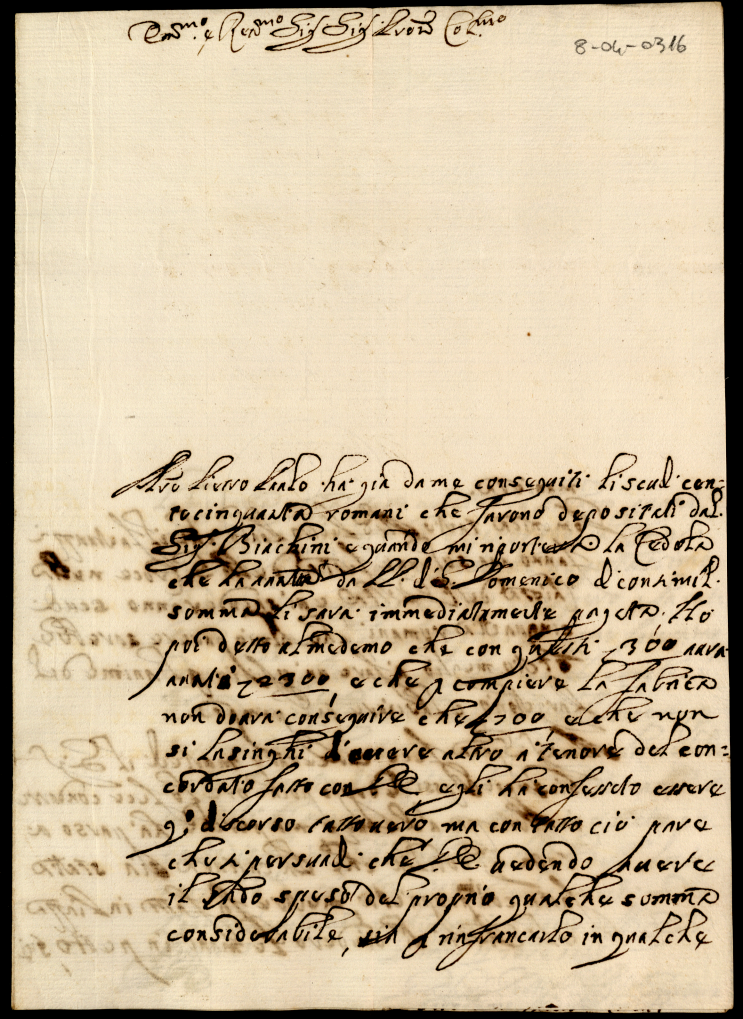 Em.mo e Re.mo Sig.r Sig.r Pron Col.mo
8-04-0316
Pietro Paolo ha già da me conseguiti li scudi cen-
tocinquanta romani che furono depositati dal
Sig.r Biachini e quando mi riporterà la Cedola
che da PP. di S. Domenico di consimil
somma li sarà immediatamente pagata. Ho
poi detto al medemo che con questi 300 avrà
2300, e che p compiere la fabrica
non dovrà conseguire che 700 e che non
si lusinghi d'avere altro a tenore del con-
cordato fatto con egli ha confessato essere
discorso tutto vero ma con tutto ciò pare
che si persuadi che vedendo avere
il speso del proprio qualche somma
considerabile, sia p rinfrancarlo in qualche